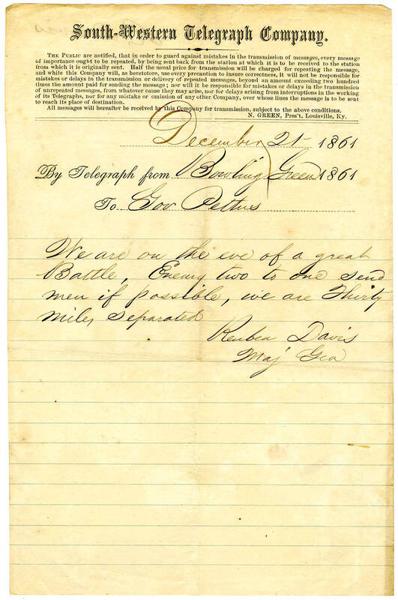 South-Western Telegraph Company.
The Public are notified, that in order to guard against mistakes in the transmission of messages, every message
of importance ought to be repeated, by being sent back from the station at which it is to be received to the station
from which it is originally sent. Half the usual price for transmission will be charged for repeating the message,
and while this Company will, as heretofore, use every precaution to insure correctness, it will not be responsible for
mistakes or delays in the transmission or delivery of repeated messages, beyond an amount exceeding two hundred
times the amount paid for sending the message; nor will it be responsible for mistakes or delays in the transmission
of unrepeated messages, from whatever cause they may arise, nor for delays arising from interruptions in the working
of its Telegraphs, nor for any mistake or omission of any other Company, over whose lines the message is to be sent
to reach its place of destination.
All messages will hereafter be received by this Company for transmission, subject to the above conditions.
N. GREEN, Pres't, Louisville, Ky.
December 21 1861
By Telegraph from Bowling Green 1861
To Gov Pettus
We are on the eve of a great
Battle, Enemy two to one send
men if possible, we are Thirty
miles separated
Reuben Davis
Maj Gen